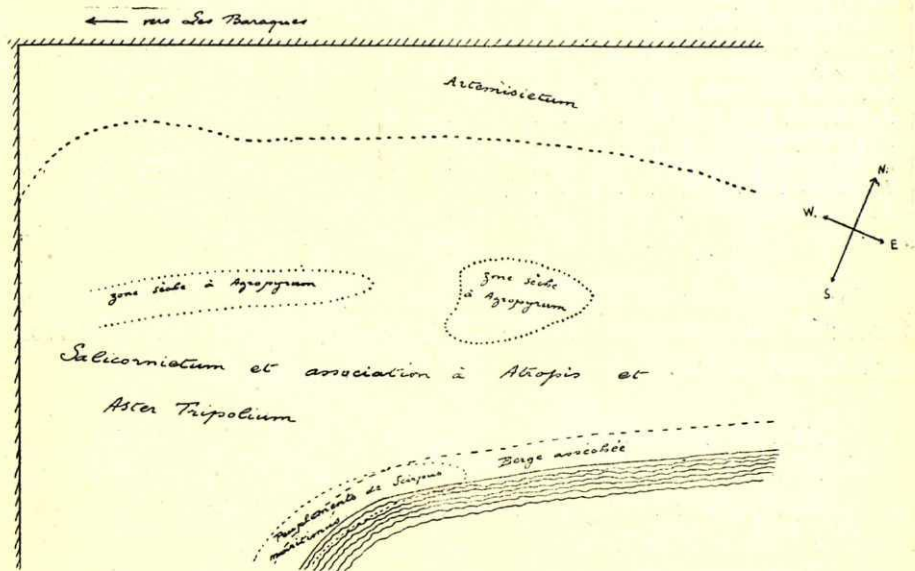 ← vers Les Baraques
Artemisietum
N.
W.
E
S.
zone sèche à Agropyrum
zone sèche
à Agropyrum
Salicornietum et association à Atropis et
Aster Tripolium
Berge asséchée
Peuplements de Scirpus
maritimus